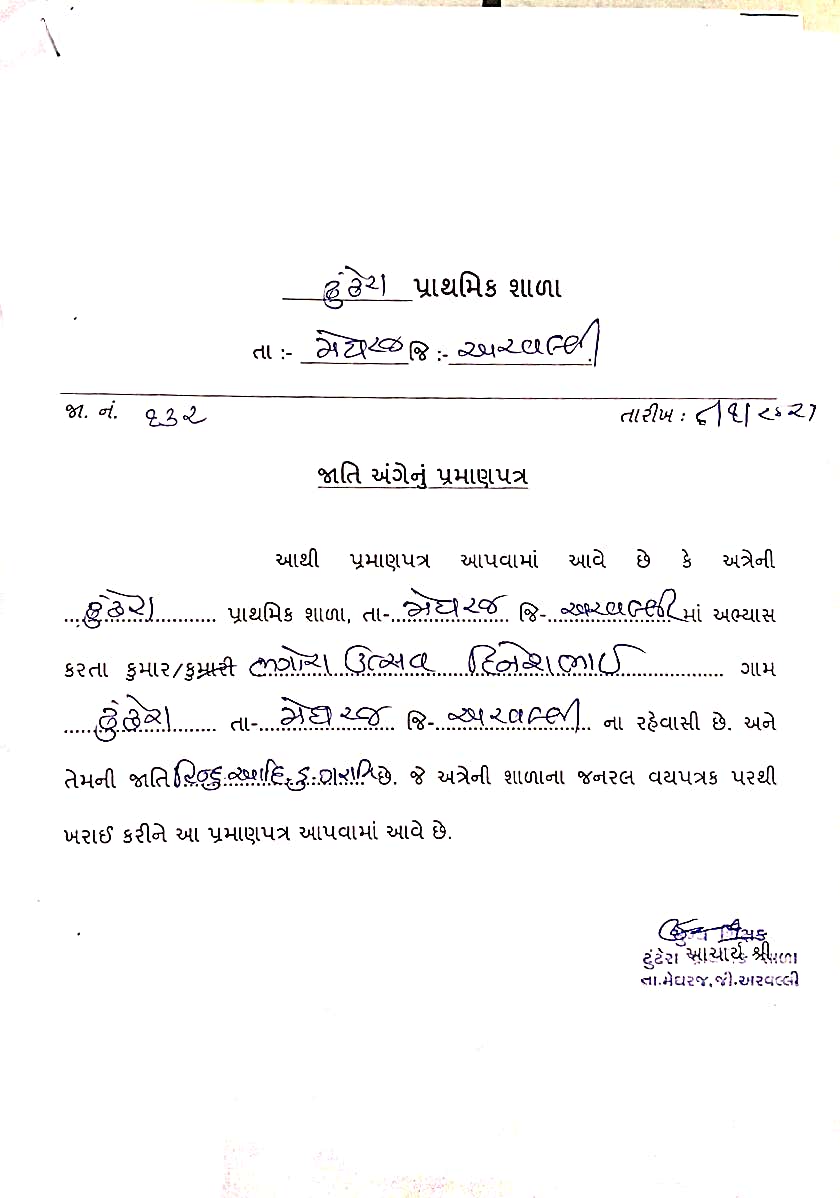 ઢુંઢેરા પ્રાથમિક શાળા
તા :- મેઘરજ જિ :- અરવલ્લી
જા. નં. ૧૩૨ તારીખ : ૮/૧/૨૦૨૧
જાતિ અંગેનું પ્રમાણપત્ર
આથી પ્રમાણપત્ર આપવામાં આવે છે કે અત્રેની
ઢુંઢેરા પ્રાથમિક શાળા, તા- મેઘરજ જિ- અરવલ્લી માં અભ્યાસ
કરતા કુમાર/કુમારી ભગોરા ઉત્સવ દિનેશભાઈ ગામ
ઢુંઢેરા તા- મેઘરજ જિ- અરવલ્લી ના રહેવાસી છે. અને
તેમની જાતિ હિન્દુ આદિ. ડુ. ગરાસિ છે. જે અત્રેની શાળાના જનરલ વયપત્રક પરથી
ખરાઈ કરીને આ પ્રમાણપત્ર આપવામાં આવે છે.
ઢુંઢેરા આચાર્ય શ્રી
તા.મેઘરજ,જી.અરવલ્લી